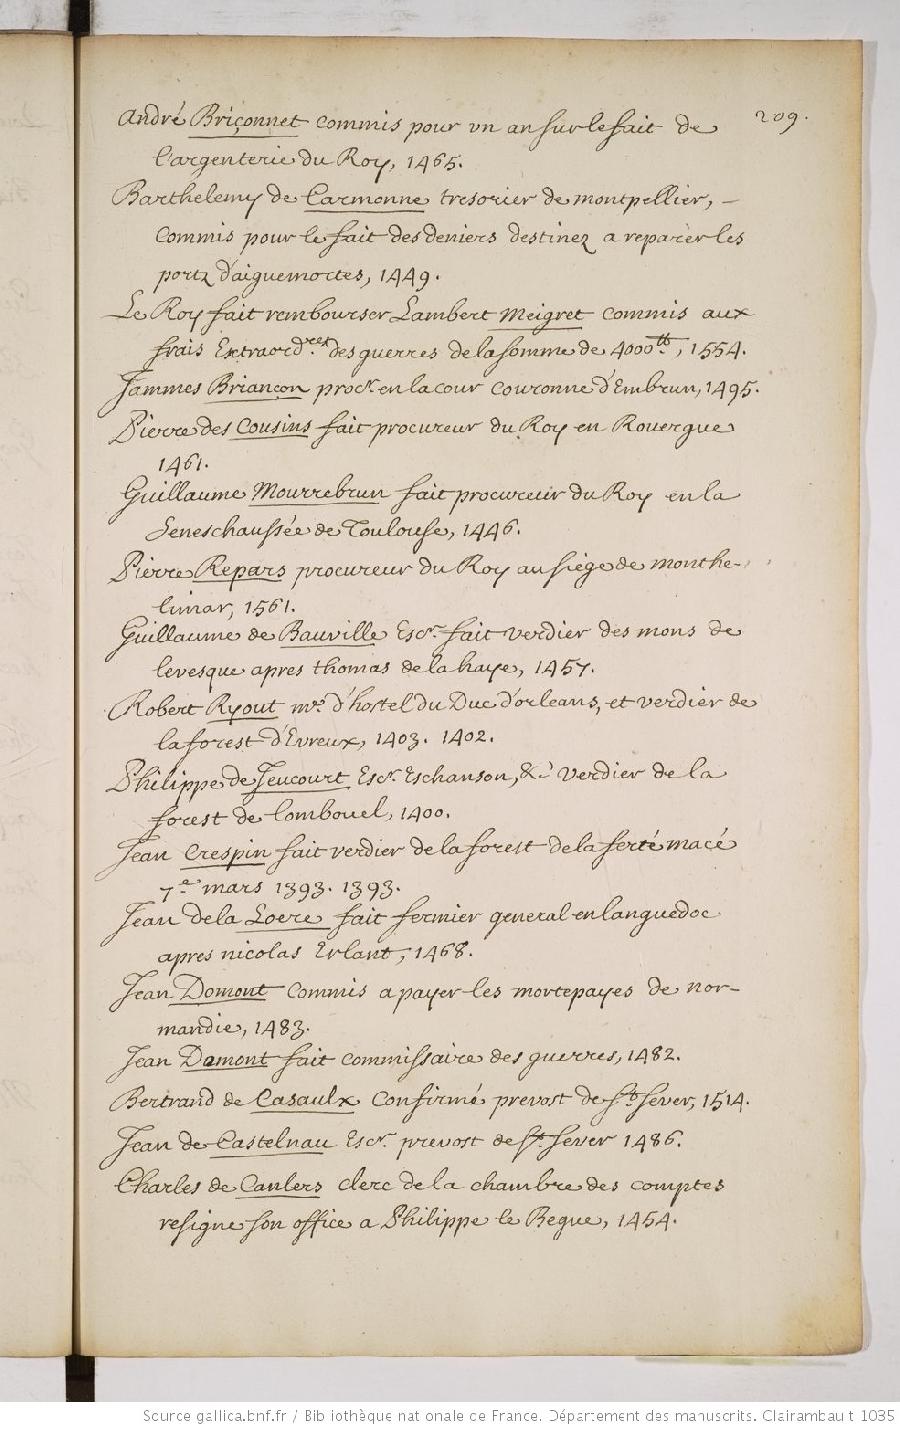 209.
André Briçonnet commis pour un an sur le fait de
l'argenterie du Roy, 1465.
Barthelemy de Carmonne tresorier de montpellier, –
commis pour le fait des deniers destinez a reparer les
portz d'aiguemortes, 1449.
Le Roy fait rembourser Lambert Meigret commis aux
frais Extraord.res des guerres de la somme de 4000tt, 1554.
Jammes Briançon procr. en la cour couronne d'Embrun, 1495.
Pierre des Cousins fait procureur du Roy en Rouergue
1461.
Guillaume Mourrebrun fait procureur du Roy en la
Seneschaussée de Toulouse, 1446.
Pierre Repars procureur du Roy au siege de monthe-
limar, 1561.
Guillaume de Bauville Escr. fait verdier des mons de
levesque apres thomas de la haye, 1457.
Robert Ryout me. d'hostel du Duc d'orleans, et verdier de
la forest d'Evreux, 1403. 1402.
Philippe de Jeucourt Escr. Eschanson, &c verdier de la
forest de Combouel, 1400.
Jean Crespin fait verdier de la forest de la ferté macé
7e mars 1393. 1393.
Jean de la Loere fait fermier general en languedoc
apres nicolas Erlant, 1468.
Jean Domont commis a payer les mortepayes de nor-
mandie, 1483.
Jean Damont fait commissaire des guerres, 1482.
Bertrand de Casaulx confirmé prevost de St. sever, 1514.
Jean de Castelnau Escr. prevost de St. sever 1486.
Charles de Canlers clerc de la chambre des comptes
resigne son office a Philippe le Begue, 1454.
Source gallica.bnf.fr / Bibliothèque nationale de France. Département des manuscrits. Clairambault 1035